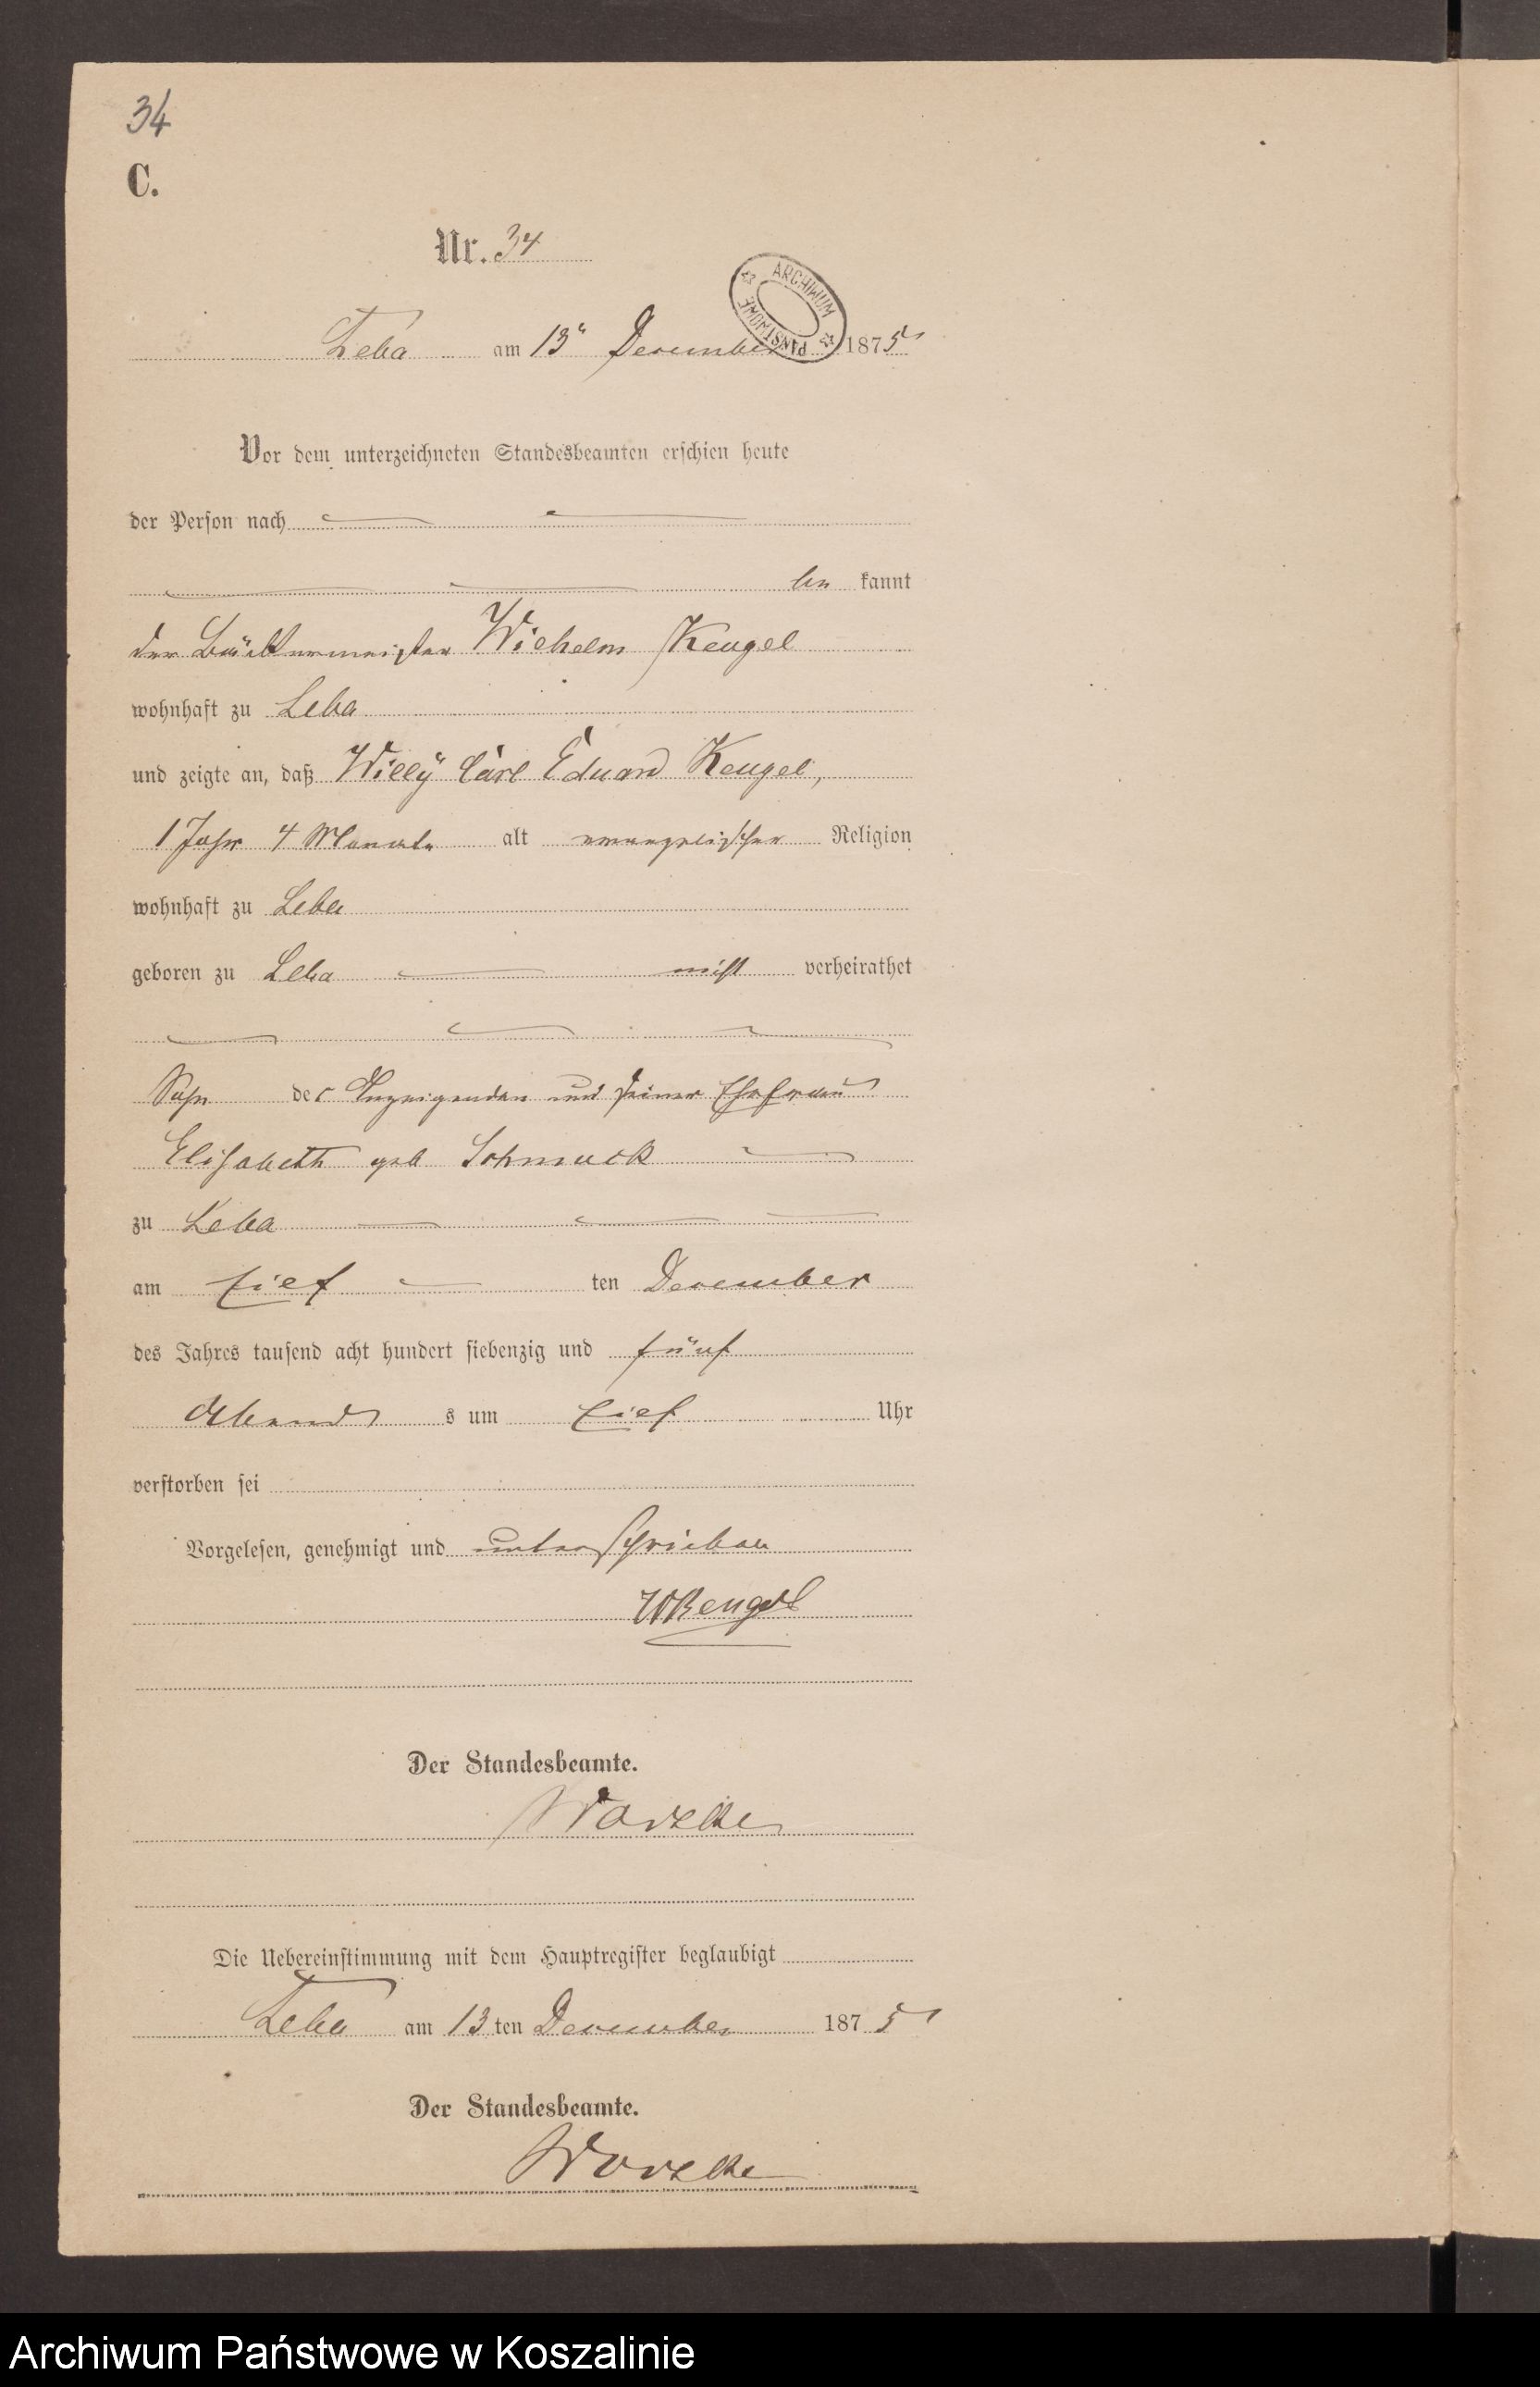 34
C.
Nr. 34
ARCHIWUM PAŃSTWOWE
Leba am 13ᵗ December 1875
Vor dem unterzeichneten Standesbeamten erschien heute
der Person nach
be kannt
der Bäckermeister Wilhelm Kengel
wohnhaft zu Leba
und zeigte an, daß Willÿ Carl Eduard Kengel,
1 Jahr 4 Monate alt evangelischer Religion
wohnhaft zu Leba
geboren zu Leba nicht verheirathet
Sohn des Anzeigenden und seiner Ehefrau
Elisabeth geb Schmuck
zu Leba
am elf ten December
des Jahres tausend acht hundert siebenzig und fünf
Abend s um elf Uhr
verstorben sei
Vorgelesen, genehmigt und unterschrieben
WKengel
Der Standesbeamte.
Die Uebereinstimmung mit dem Hauptregister beglaubigt
Leba am 13 ten December 1875
Der Standesbeamte.
Archiwum Państwowe w Koszalinie